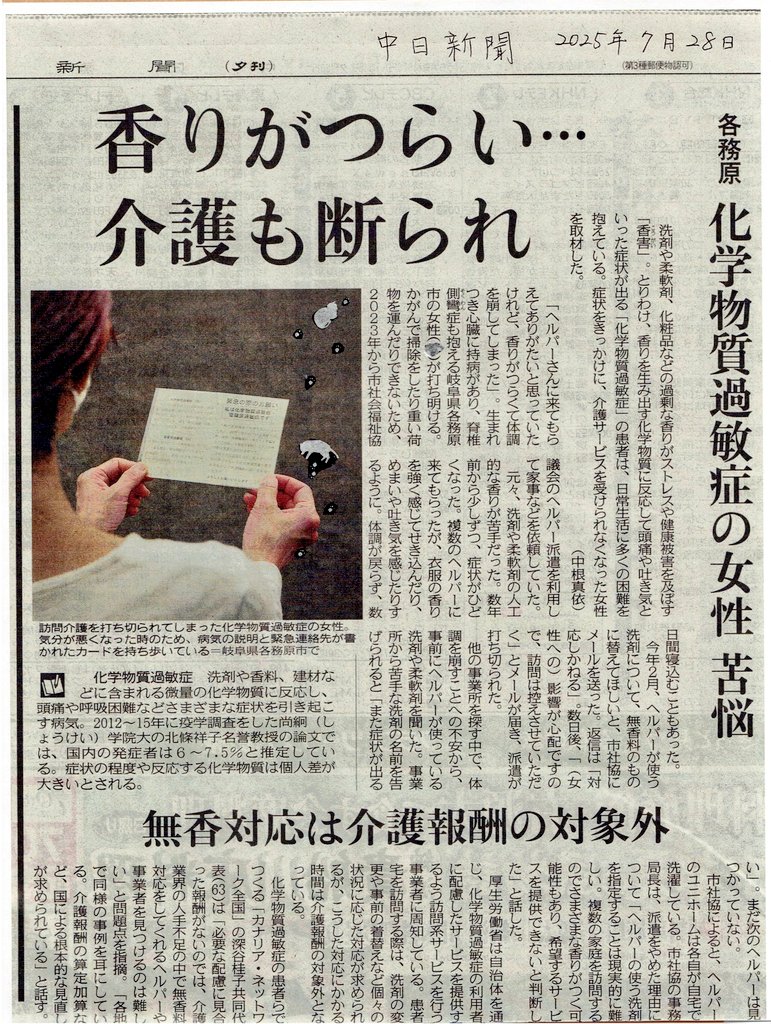 中日新聞 2025年7月28日
新聞 (夕刊) (第3種郵便物認可)
香りがつらい…
介護も断られ
各務原 化学物質過敏症の女性 苦悩
洗剤や柔軟剤、化粧品などの過剰な香りがストレスや健康被害を及ぼす
「香害」。とりわけ、香りを生み出す化学物質に反応して頭痛や吐き気と
いった症状が出る「化学物質過敏症」の患者は、日常生活に多くの困難を
抱えている。症状をきっかけに、介護サービスを受けられなくなった女性
を取材した。 (中根真依)
「ヘルパーさんに来てもら
えてありがたいと思っていた
けれど、香りがつらくて体調
を崩してしまった」。生まれ
つき心臓に持病があり、脊椎
側彎症も抱える岐阜県各務原
市の女性()が打ち明ける。
かがんで掃除をしたり重い荷
物を運んだりできないため、
2023年から市社会福祉協
議会のヘルパー派遣を利用し
て家事などを依頼していた。
元々、洗剤や柔軟剤の人工
的な香りが苦手だった。数年
前から少しずつ、症状がひど
くなった。複数のヘルパーに
来てもらったが、衣服の香り
を強く感じてせき込んだり、
めまいや吐き気を感じたりす
るように。体調が戻らず、数
日間寝込むこともあった。
今年2月、ヘルパーが使う
洗剤について、無香料のもの
に替えてほしいと、市社協に
メールを送った。返信は「対
応しかねる」。数日後、「(女
性への)影響が心配ですの
で、訪問は控えさせていただ
く」とメールが届き、派遣が
打ち切られた。
他の事業所を探す中で、体
調を崩すことへの不安から、
事前にヘルパーが使っている
洗剤や柔軟剤を聞いた。事業
所から苦手な洗剤の名前を告
げられると「また症状が出る
訪問介護を打ち切られてしまった化学物質過敏症の女性。
気分が悪くなった時のため、病気の説明と緊急連絡先が書
かれたカードを持ち歩いている=岐阜県各務原市で
化学物質過敏症 洗剤や香料、建材な
どに含まれる微量の化学物質に反応し、
頭痛や呼吸困難などさまざまな症状を引き起こ
す病気。2012〜15年に疫学調査をした尚絅(し
ょうけい)学院大の北條祥子名誉教授の論文で
は、国内の発症者は6〜7.5%と推定してい
る。症状の程度や反応する化学物質は個人差が
大きいとされる。
無香対応は介護報酬の対象外
い」。まだ次のヘルパーは見
つかっていない。
市社協によると、ヘルパー
のユニホームは各自が自宅で
洗濯している。市社協の事務
局長は、派遣をやめた理由に
ついて「ヘルパーの使う洗剤
を指定することは現実的に難
しい。複数の家庭を訪問する
のでさまざまな香りがつく可
能性もあり、希望するサービ
スを提供できないと判断し
た」と話した。
厚生労働省は自治体を通
じ、化学物質過敏症の利用者
に配慮したサービスを提供す
るよう訪問系サービスを行う
事業者に周知している。患者
宅を訪問する際は、洗剤の変
更や事前の着替えなど個々の
状況に応じた対応が求められ
るが、こうした対応にかかる
時間は介護報酬の対象外とな
っている。
化学物質過敏症の患者らで
つくる「カナリア・ネットワ
ーク全国」の深谷桂子共同代
表(63)は「必要な配慮に見合
った報酬がないのでは、介護
業界の人手不足の中で無香料
対応をしてくれるヘルパーや
事業者を見つけるのは難し
い」と問題点を指摘。「各地
で同様の事例を耳にしてい
る。介護報酬の算定加算な
ど、国による根本的な見直し
が求められている」と話す。